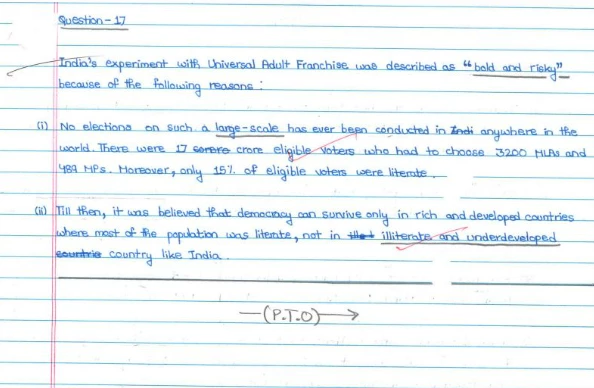 Question - 17
India's experiment with Universal Adult Franchise was described as "bold and risky"
because of the following reasons :
(i) No elections on such a large-scale has ever been conducted in Indi anywhere in the
world. There were 17 corore crore eligible voters who had to choose 3200 MLAs and
489 MPs. Moreover, only 15% of eligible voters were literate.
(ii) Till then, it was believed that democracy can survive only in rich and developed countries
where most of the population was literate, not in illiterate and underdeveloped
countrie country like India.
(P.T.O)